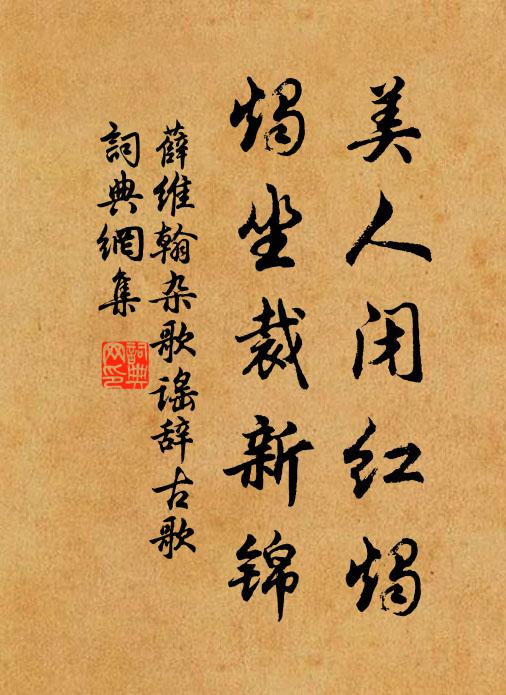 美人闭红烛
烛坐裁新锦
薛维翰杂歌谣辞古歌
词典网集
詞典网印